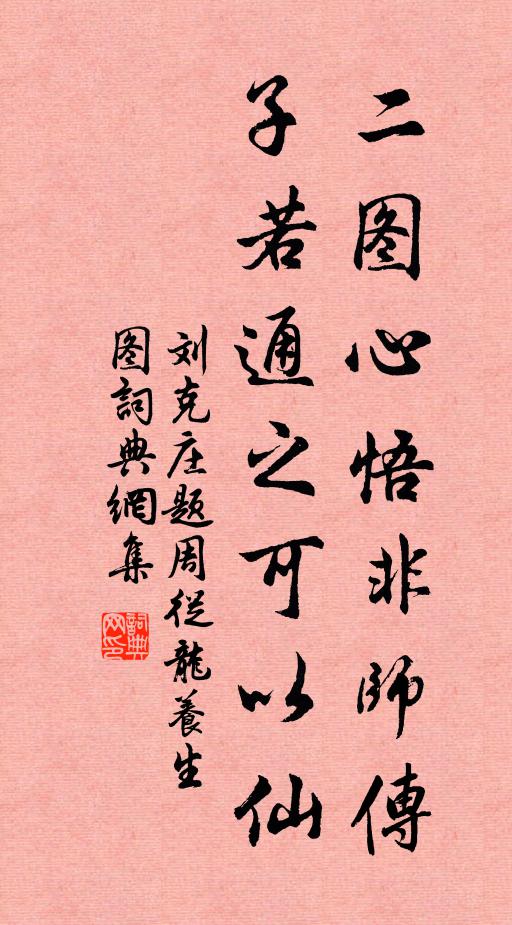 二图心悟非師傳
子若通之可以仙
刘克庄题周從龍養生
图詞典網集
詞典网印